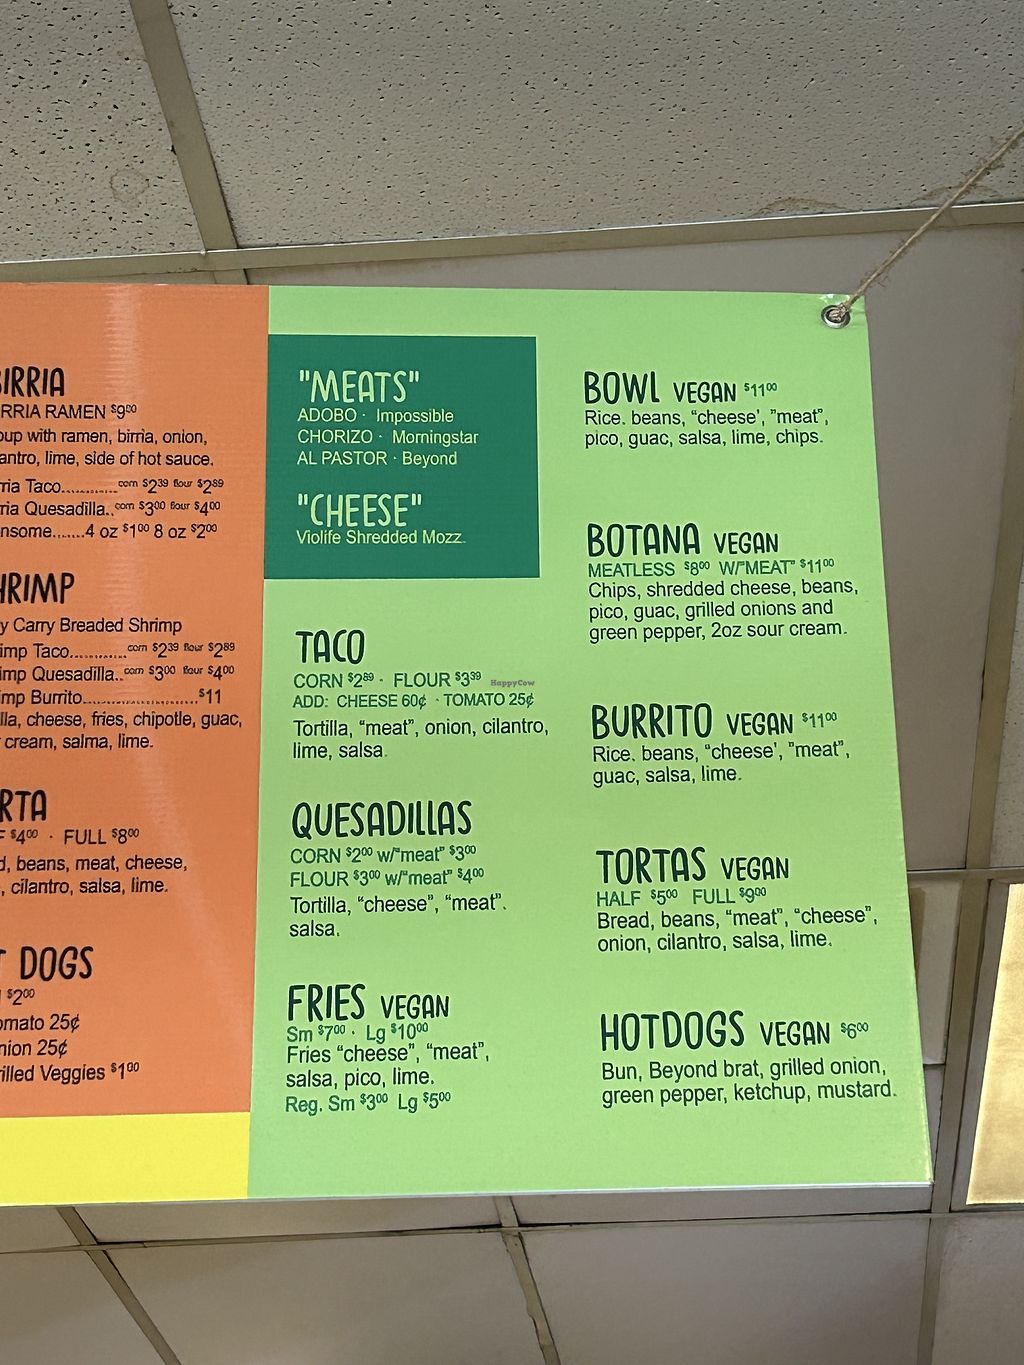 BIRRIA
RRIA RAMEN $9⁰⁰
oup with ramen, birria, onion,
antro, lime, side of hot sauce.
rria Taco............corn $2³⁹ flour $2⁸⁹
rria Quesadilla..corn $3⁰⁰ flour $4⁰⁰
nsome.......4 oz $1⁰⁰ 8 oz $2⁰⁰
HRIMP
y Carry Breaded Shrimp
imp Taco............corn $2³⁹ flour $2⁸⁹
imp Quesadilla..corn $3⁰⁰ flour $4⁰⁰
imp Burrito........................$11
lla, cheese, fries, chipotle, guac,
r cream, salma, lime.
RTA
F $4⁰⁰ · FULL $8⁰⁰
d, beans, meat, cheese,
, cilantro, salsa, lime.
T DOGS
$2⁰⁰
omato 25¢
nion 25¢
rilled Veggies $1⁰⁰
"MEATS"
ADOBO · Impossible
CHORIZO · Morningstar
AL PASTOR · Beyond
"CHEESE"
Violife Shredded Mozz.
TACO
CORN $2⁸⁹ · FLOUR $3³⁹
HappyCow
ADD: CHEESE 60¢ · TOMATO 25¢
Tortilla, "meat", onion, cilantro,
lime, salsa.
QUESADILLAS
CORN $2⁰⁰ w/"meat" $3⁰⁰
FLOUR $3⁰⁰ w/"meat" $4⁰⁰
Tortilla, "cheese", "meat".
salsa.
FRIES VEGAN
Sm $7⁰⁰ · Lg $10⁰⁰
Fries "cheese", "meat",
salsa, pico, lime.
Reg. Sm $3⁰⁰ Lg $5⁰⁰
BOWL VEGAN $11⁰⁰
Rice. beans, "cheese', "meat",
pico, guac, salsa, lime, chips.
BOTANA VEGAN
MEATLESS $8⁰⁰ W/"MEAT" $11⁰⁰
Chips, shredded cheese, beans,
pico, guac, grilled onions and
green pepper, 2oz sour cream.
BURRITO VEGAN $11⁰⁰
Rice. beans, "cheese', "meat",
guac, salsa, lime.
TORTAS VEGAN
HALF $5⁰⁰ FULL $9⁰⁰
Bread, beans, "meat", "cheese",
onion, cilantro, salsa, lime.
HOTDOGS VEGAN $6⁰⁰
Bun, Beyond brat, grilled onion,
green pepper, ketchup, mustard.